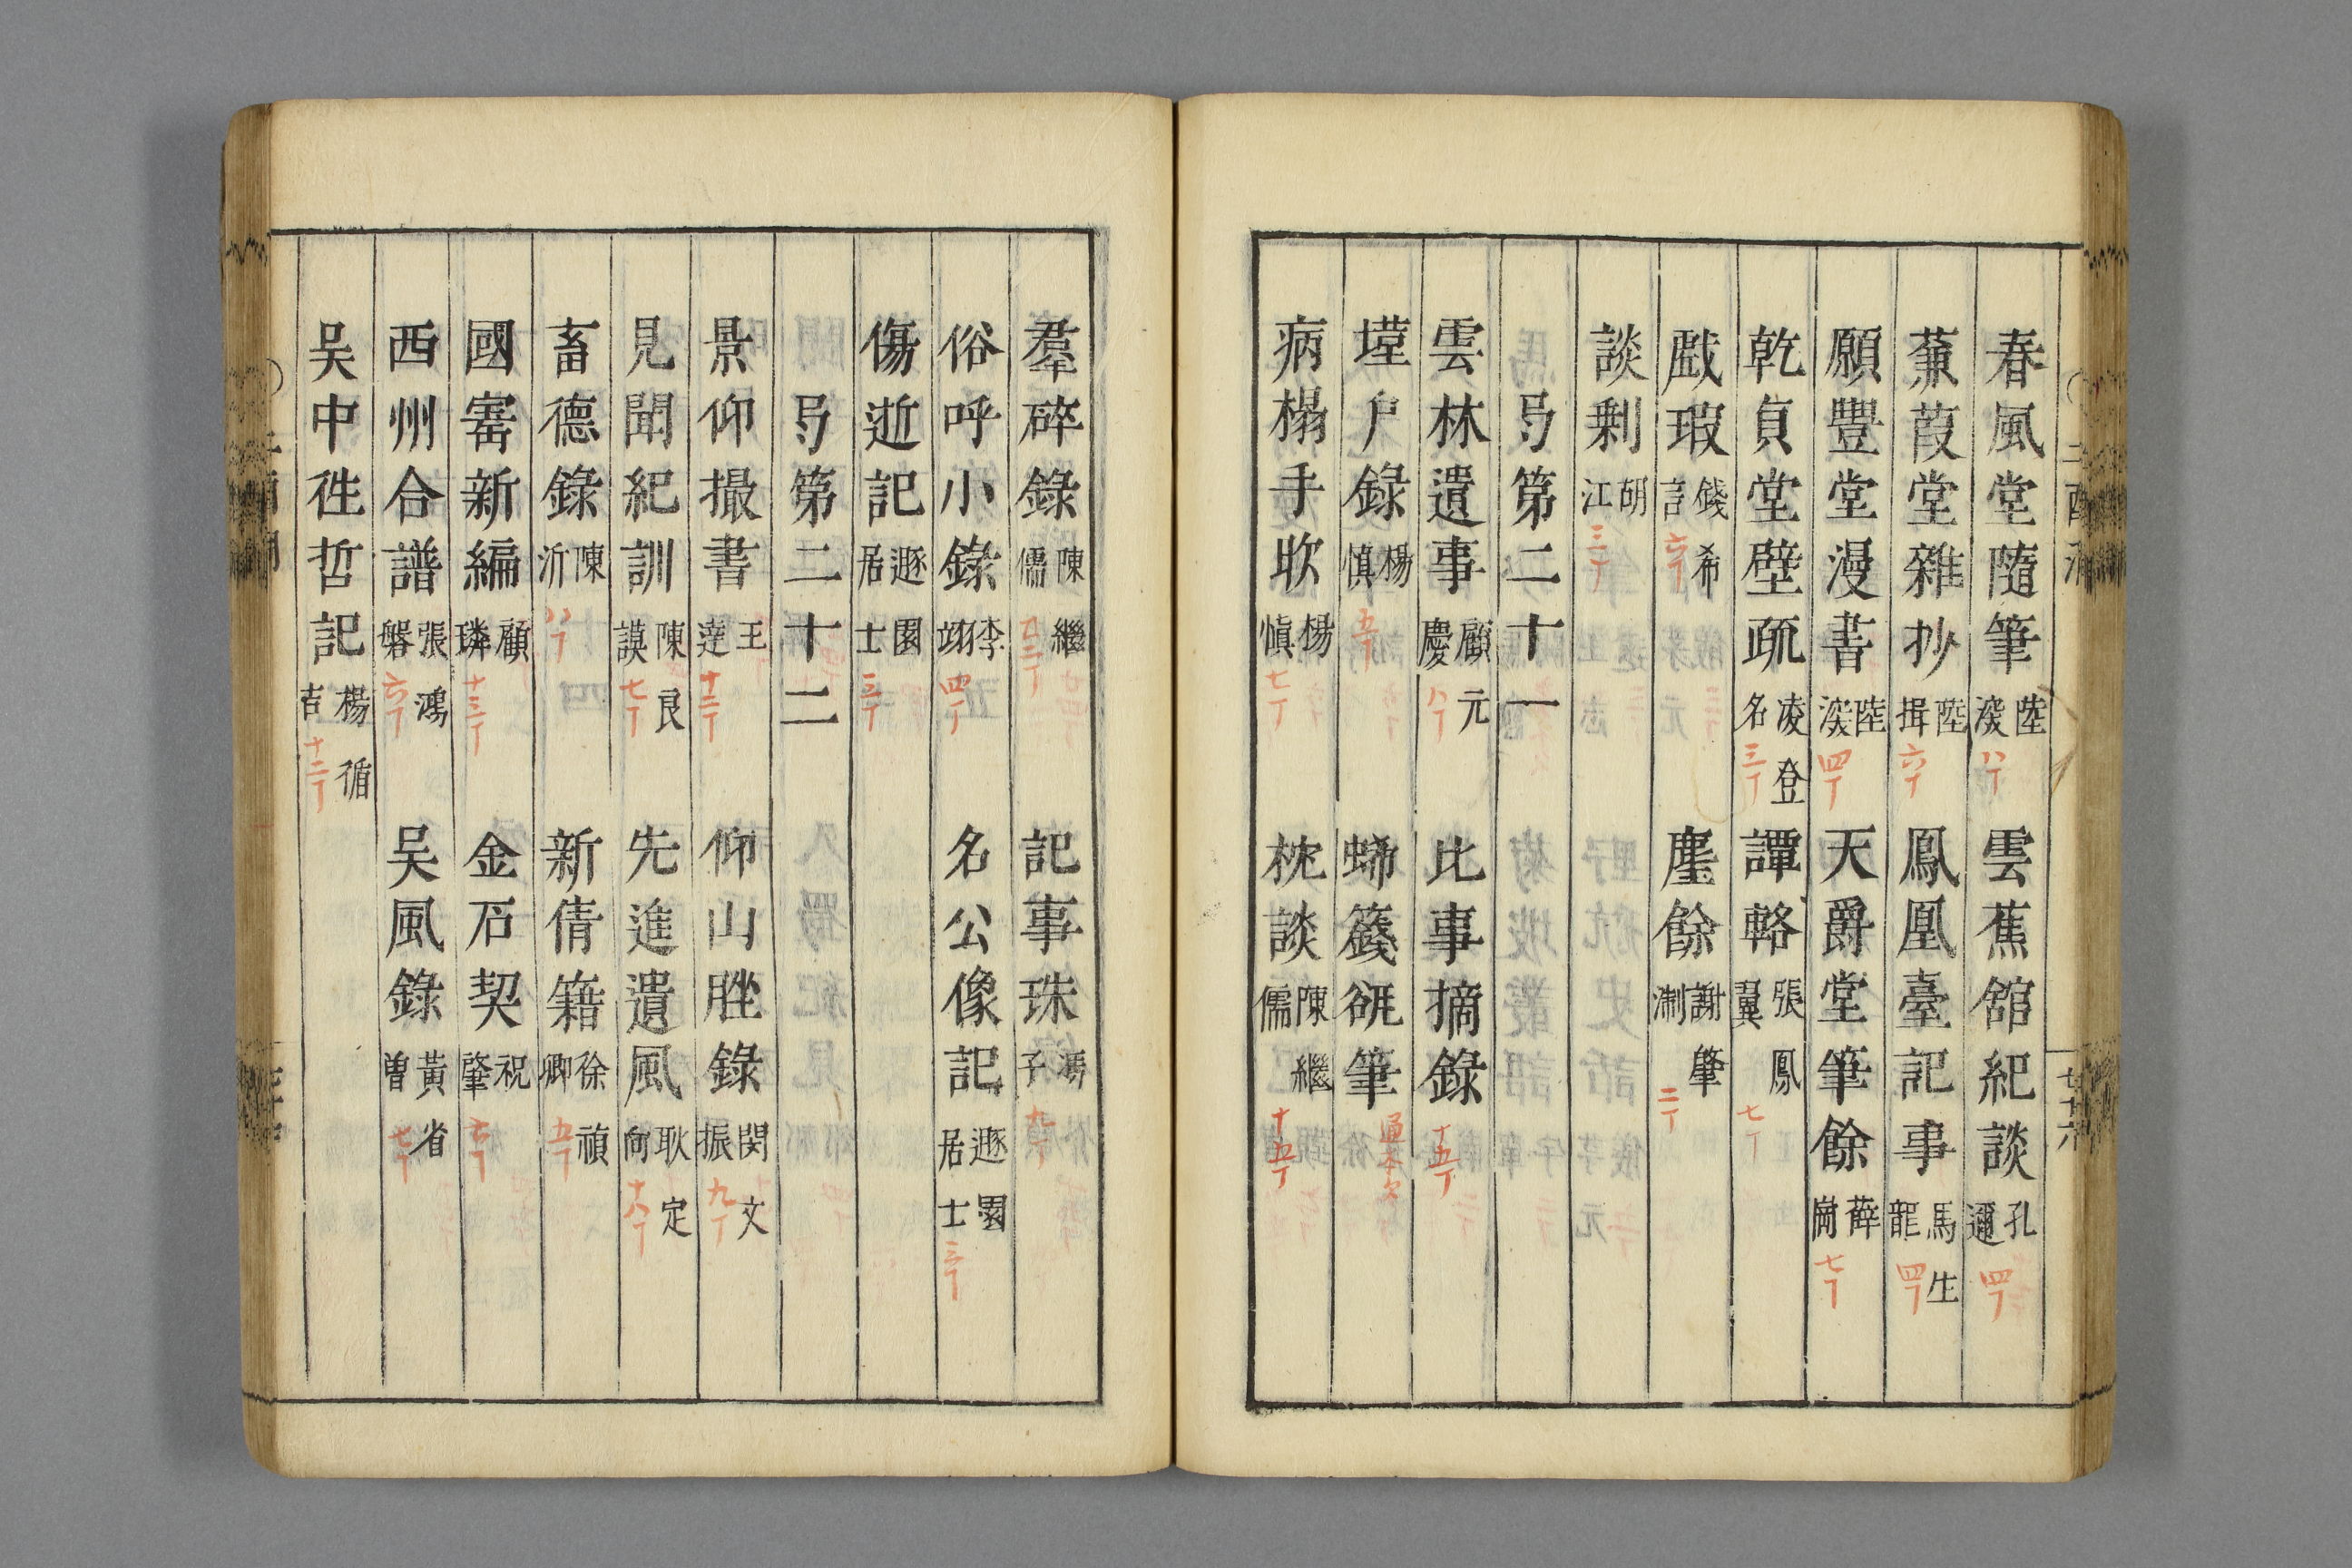 春風堂隨筆 陸深 八丁 雲蕉館紀談 孔邇 四丁
蒹葭堂雜抄 陸揖 六丁 鳳凰臺記事 馬生龍 四丁
願豐堂漫書 陸深 四丁 天爵堂筆餘 薛崗 七丁
乾貞堂壁疏 凌登名 三丁 譚輅 張鳳翼 七丁
戯瑕 錢希言 六丁 麈餘 謝肇淛 二丁
談剩 胡江 三丁
弓第二十一
雲林遺事 顧元慶 八丁 比事摘錄 十五丁
墐戶錄 楊慎 五丁 蜵籤瓻筆
病榻手欥 楊慎 七丁 枕談 陳繼儒 十五丁
羣碎錄 陳繼儒 廿三丁 記事珠 馮子 九丁
俗呼小錄 李翊 四丁 名公像記 遯園居士 三丁
傷逝記 遯園居士 三丁
弓第二十二
景仰撮書 王達 十二丁 仰山脞錄 閔文振 九丁
見聞紀訓 陳良謨 七丁 先進遺風 耿定向 十八丁
畜德錄 陳沂 八丁 新倩籍 徐禎卿 五丁
國寶新編 顧璘 十三丁 金石契 祝肇 七丁
西州合譜 張鴻磐 六丁 吳風錄 黃省曾 七丁
吳中徃哲記 楊循吉 十二丁